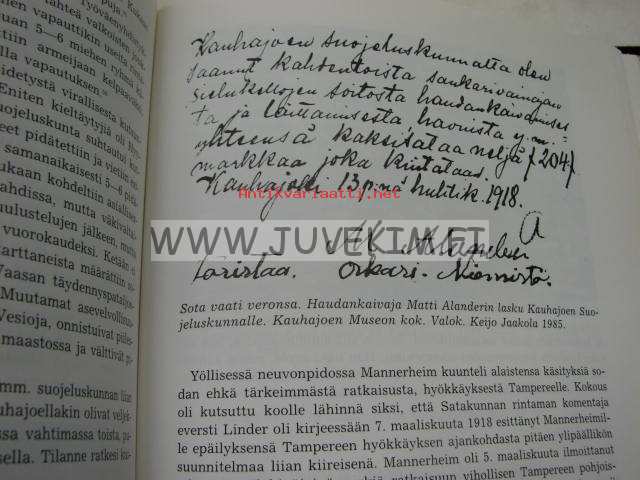 Puja, Kauhajoen
Työväenyhdistyk
lähteä valkoisten jouk
n vapauttikin useim
uan 5—6 miehen ryhmä ka
it armeijaan kelpaaviksi
la vapautuksen
idetystä virallisesta kutsun
Eniten kieltäytyjiä oli Hy
uojeluskunta suhtautui
eet pidätettiin ja vietiin
samanaikaisesti 5—6 pi
ukaan kohdeltiin asiallis
ahdissa, mutta väkivalta
uulustelujen jälkeen, muttei
vuorokaudeksi. Ketään ei
arttaneista määrättiin so
Vaasan täydennyspataljoo
Muutamat asevelvollisu
Vesioja, onnistuivat piiles
maastossa ja välttivät pi
mm. suojeluskunnan lian
uhajoellakin olivat veljek
ssa vahtimassa toista, pa
sella. Tilanne ratkesi kui
Kauhajoen suojeluskunnalta olen
saanut kahdentoista sankarivainajan
sielukellojen soitosta haudankaivamises
ta ja laittamisesta havuista y.m. =
yhteensä kaksisataa neljä (204)
markkaa joka kuitataas.
Kauhajoki 13 p:nä huhtik. 1918.
Antikvariaatti.net
WWW.JUVEKIM.NET
M. Alander
Toristaa. Oskari Niemistö.
Sota vaati veronsa. Haudankaivaja Matti Alanderin lasku Kauhajoen Suo-
jeluskunnalle. Kauhajoen Museon kok. Valok. Keijo Jaakola 1985.
Yöllisessä neuvonpidossa Mannerheim kuunteli alaistensa käsityksiä so-
dan ehkä tärkeimmästä ratkaisusta, hyökkäyksestä Tampereelle. Kokous
oli kutsuttu koolle lähinnä siksi, että Satakunnan rintaman komentaja
eversti Linder oli kirjeessään 7. maaliskuuta 1918 esittänyt Mannerheimil-
le epäilyksensä Tampereen hyökkäyksen ajankohdasta pitäen ylipäällikön
suunnitelmaa liian kiireisenä. Mannerheim oli 5. maaliskuuta ilmoittanut
ratkaisuun vihollisen Tampereen pohjois-